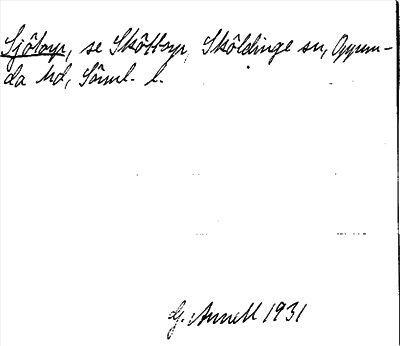 Sjötorp, se Sköttorp, Sköldinge sn, Oppun-
da hd, Söml. l.
G. Annell 1931